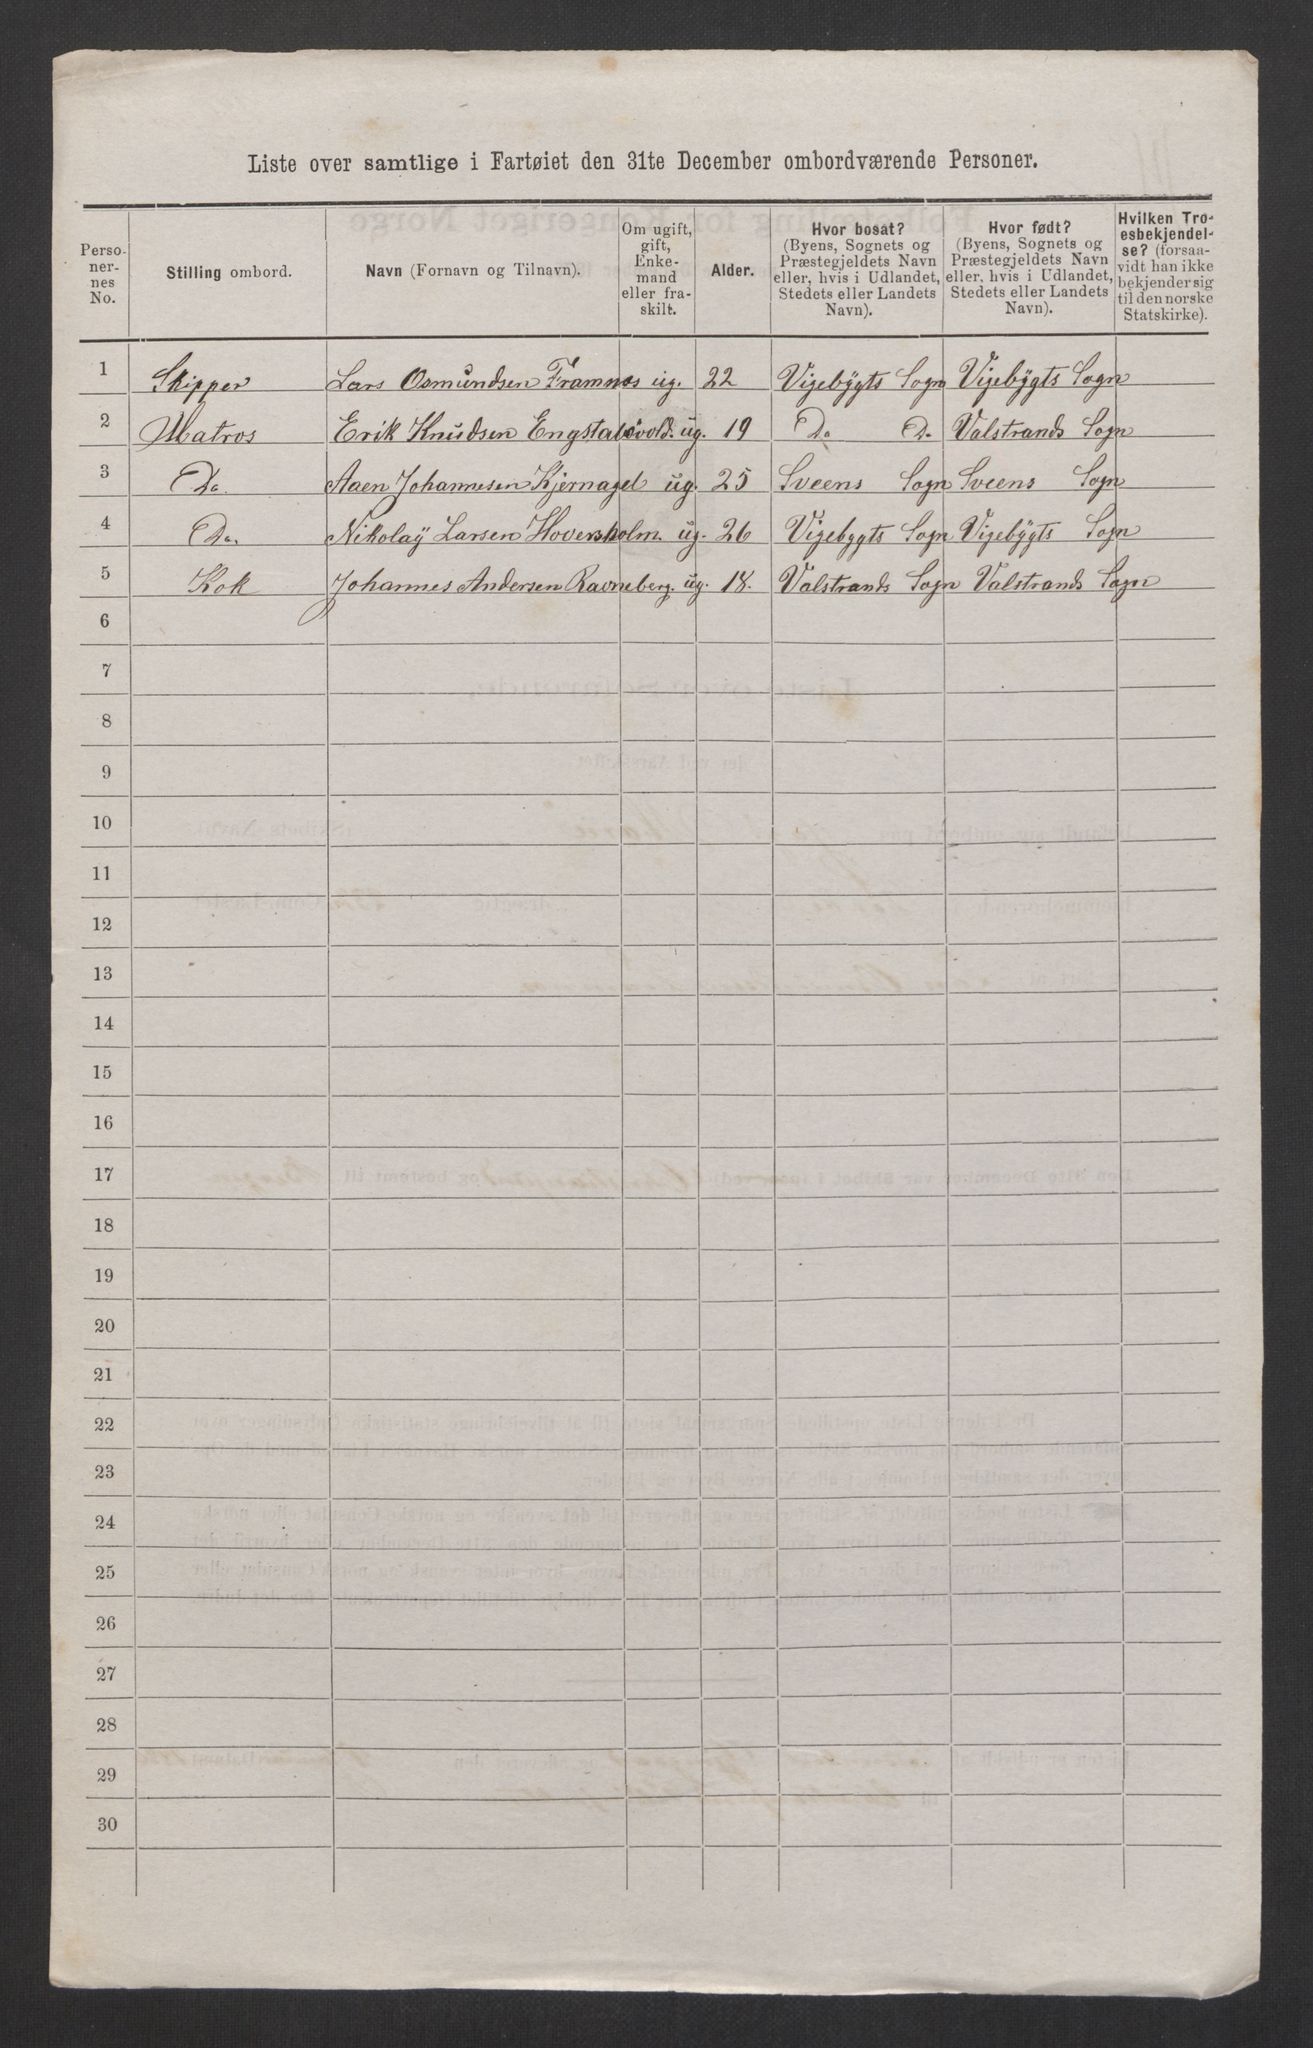 Liste over samtlige i Fartøiet den 31te December ombordværende Personer.
Perso-
ner-
nes
No.
Stilling ombord.
Navn (Fornavn og Tilnavn).
Om ugift,
gift,
Enke-
mand
eller fra-
skilt.
Alder.
Hvor bosat?
(Byens, Sognets og
Præstegjeldets Navn
eller, hvis i Udlandet,
Stedets eller Landets
Navn).
Hvor født?
(Byens, Sognets og
Præstegjeldets Navn
eller, hvis i Udlandet,
Stedets eller Landets
Navn).
Hvilken Tro-
esbekjendel-
se? (forsaa-
vidt han ikke
bekjender sig
til den norske
Statskirke).
1 Skipper Lars Osmundsen Framnæs ug. 22 Vigebygts Sogn Vigebygts Sogn
2 Matros Erik Knudsen ug. 19 Do Do Valstrands Sogn
3 Do. Aaen Johannesen Kjernagel ug. 25 Sveens Sogn Sveens Sogn
4 Do. Nikolaÿ Larsen Hoversholm. ug. 26 Vigebygts Sogn Vigebygts Sogn
5 Kok Johannes Andersen Ravneberg. ug. 18. Valstrands Sogn Valstrands Sogn
6
7
8
9
10
11
12
13
14
15
16
17
18
19
20
21
22
23
24
25
26
27
28
29
30